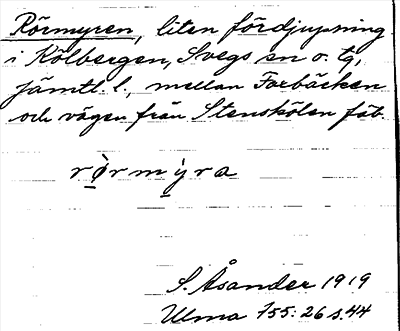 Rörmyren, liten fördjupning
i Kölbergen, Svegs sn o. tg,
Jämtl. l., mellan Forbäcken
och vägen från Stenskölen fäb.
rörmyra
S. Åsander 1919
Ulma 155:26 s. 44